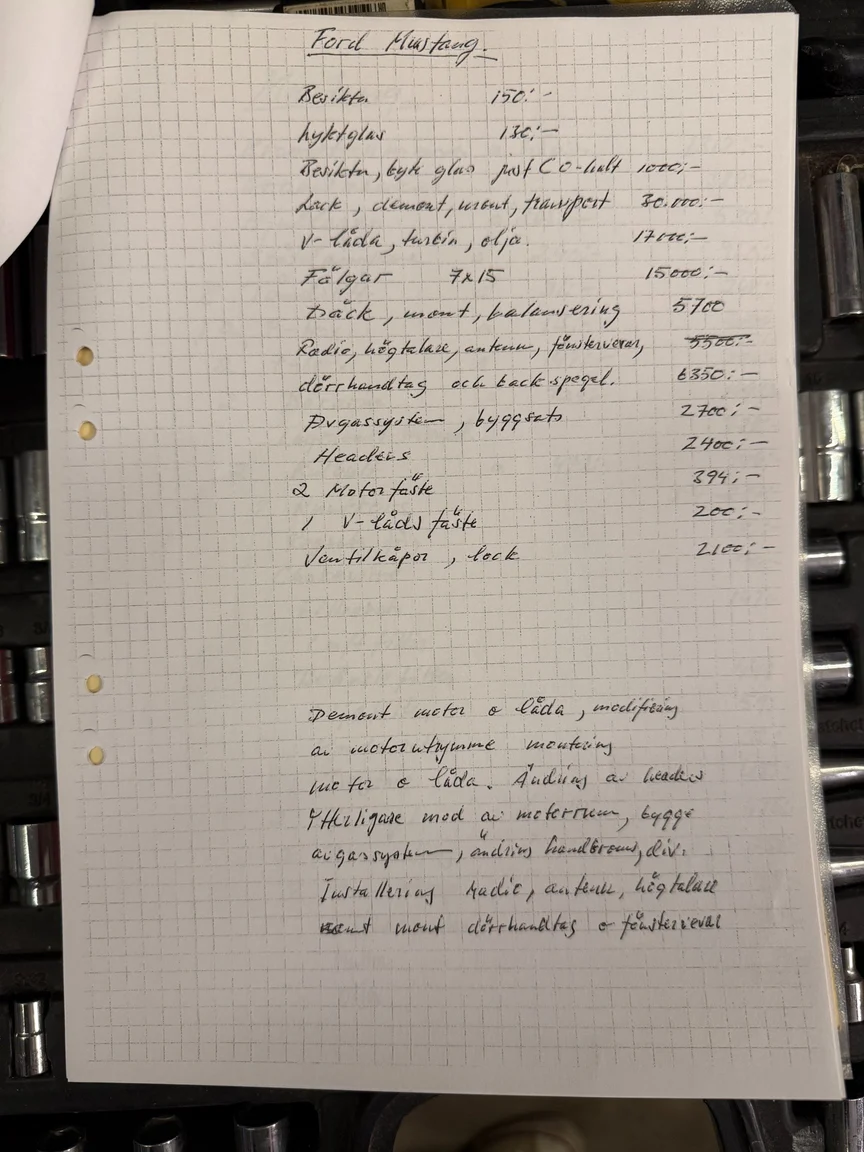 Ford Mustang.
Besiktn 150:-
Lyktglas 130:-
Besiktn, byte glas just CO-halt 1000:-
Lack, demont, mont, transport 30.000:-
V-låda, turbin, olja. 17000:-
Fälgar 7x15 15000:-
Däck, mont, balansering 5700
Radio, högtalare, antenn, fönstervevar, 5500:-
dörrhandtag och backspegel. 6350:-
Avgassystem, byggsats 2700:-
Headers 2400:-
2 Motorfäste 394:-
1 V-lådsfäste 200:-
Ventilkåpor, lock 2100:-
Demont motor o låda, modifiering
av motorutrymme montering
motor o låda. Ändring av headers
Ytterligare mod av motorrum, bygge
avgassystem, ändring handbroms, div.
Installering radio, antenn, högtalare
samt mont dörrhandtag o fönstervevar